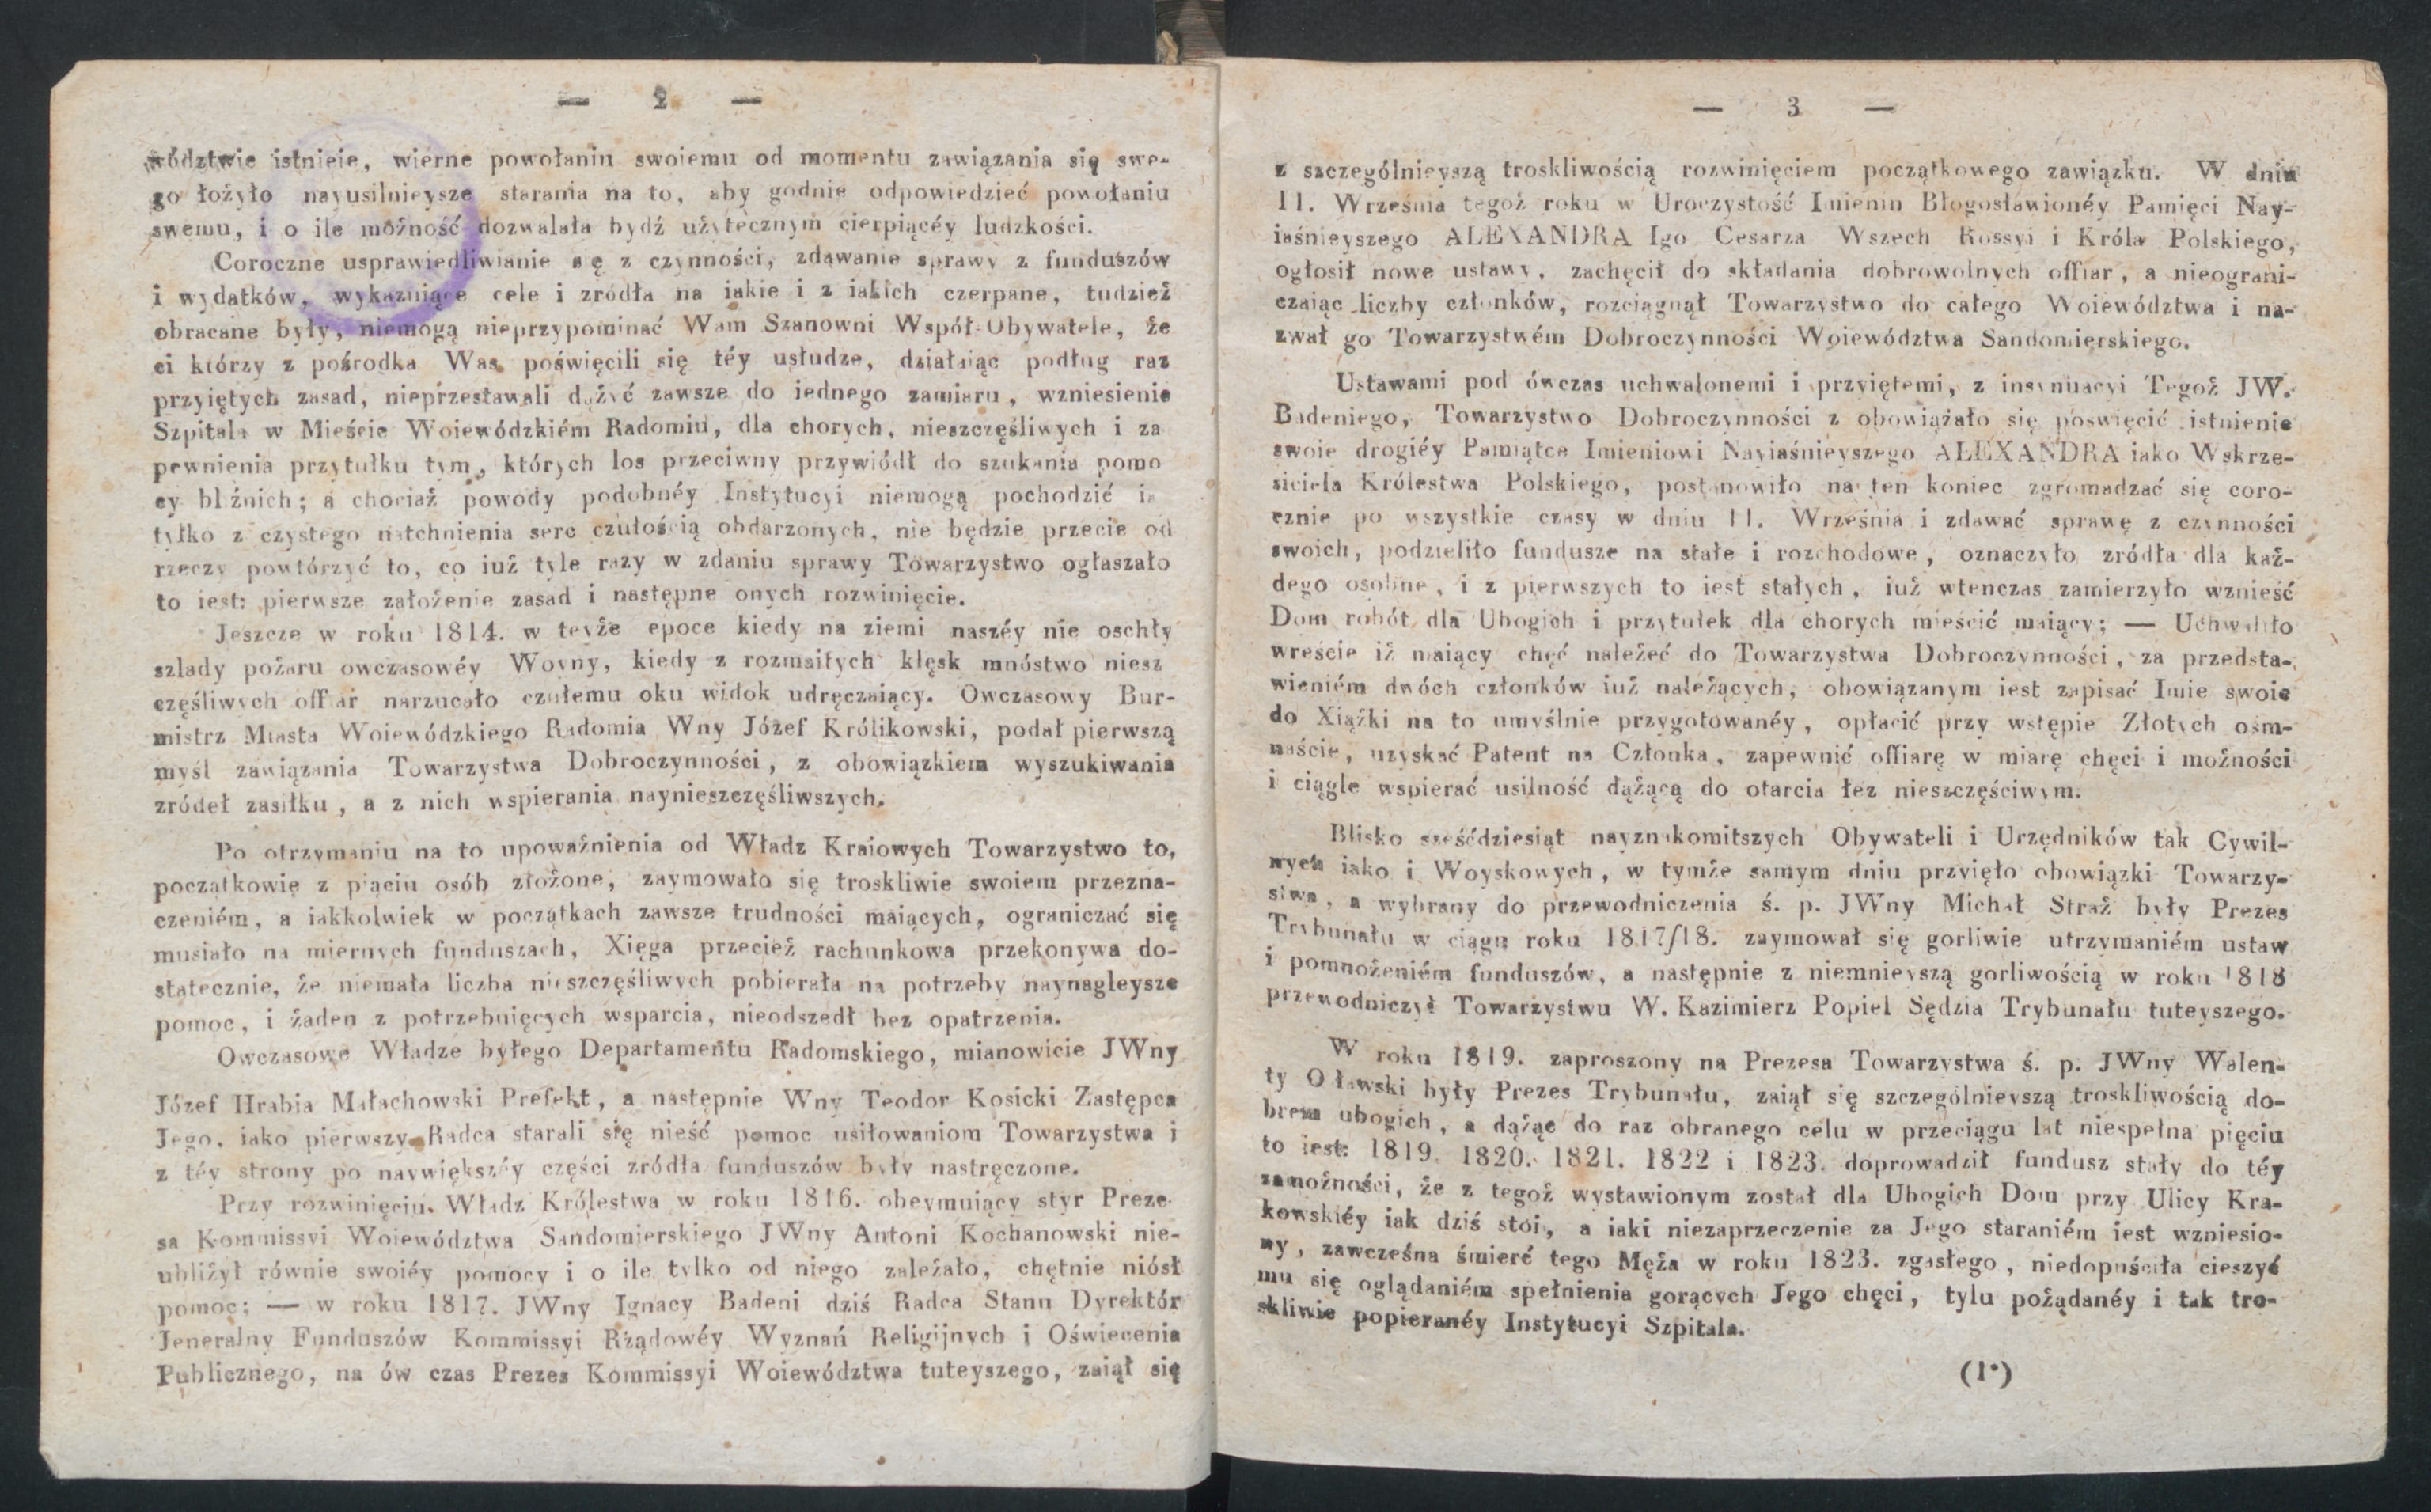 — 2 —
wództwie istnieie, wierne powołaniu swoiemu od momentu zawiązania się swe-
go łożyło nayusilnieysze starania na to, aby godnie odpowiedzieć powołaniu
swemu, i o ile możność dozwalała bydź użytecznym cierpiącéy ludzkości.
Coroczne usprawiedliwianie się z czynności, zdawanie sprawy z funduszów
i wydatków, wykazuiące cele i zródła na iakie i z iakich czerpane, tudzież
obracane były, niemogą nieprzypominać Wam Szanowni Współ-Obywatele, że
ci którzy z pośrodka Was poświęcili się téy usłudze, działaiąc podług raz
przyiętych zasad, nieprzestawali dążyć zawsze do iednego zamiaru, wzniesienie
Szpitala w Mieście Woiewódzkiém Radomiu, dla chorych, nieszczęśliwych i za
pewnienia przytułku tym, których los przeciwny przywiódł do szukania pomo
cy bliźnich; a chociaż powody podobnéy Instytucyi niemogą pochodzić ia
tylko z czystego natchnienia serc czułością obdarzonych, nie będzie przecie od
rzeczy powtórzyć to, co iuż tyle razy w zdaniu sprawy Towarzystwo ogłaszało
to iest: pierwsze założenie zasad i następne onych rozwinięcie.
Jeszcze w roku 1814. w teyże epoce kiedy na ziemi naszéy nie oschły
szlady pożaru owczasowéy Woyny, kiedy z rozmaitych klęsk mnóstwo niesz
częśliwych offiar narzucało czułemu oku widok udręczaiący. Owczasowy Bur-
mistrz Miasta Woiewódzkiego Radomia Wny Józef Królikowski, podał pierwszą
myśl zawiązania Towarzystwa Dobroczynności, z obowiązkiem wyszukiwania
zródeł zasiłku, a z nich wspierania naynieszczęśliwszych.
Po otrzymaniu na to upoważnienia od Władz Kraiowych Towarzystwo to,
początkowie z piąciu osób złożone, zaymowało się troskliwie swoiem przezna-
czeniém, a iakkolwiek w początkach zawsze trudności maiących, ograniczać się
musiało na miernych funduszach, Xięga przecież rachunkowa przekonywa do-
statecznie, że niemała liczba nieszczęśliwych pobierała na potrzeby naynagleysze
pomoc, i żaden z potrzebuięcych wsparcia, nieodszedł bez opatrzenia.
Owczasowe Władze byłego Departamentu Radomskiego, mianowicie JWny
Józef Hrabia Małachowski Prefekt, a następnie Wny Teodor Kosicki Zastępca
Jego, iako pierwszy Radca starali się nieść pomoc usiłowaniom Towarzystwa i
z téy strony po naywiększéy części zródła funduszów były nastręczone.
Przy rozwinięciu Władz Królestwa w roku 1816. obeymuiący styr Preze-
sa Kommissyi Woiewództwa Sandomierskiego JWny Antoni Kochanowski nie-
ubliżył równie swoiéy pomocy i o ile tylko od niego zależało, chętnie niósł
pomoc; — w roku 1817. JWny Ignacy Badeni dziś Radca Stanu Dyrektór
Jeneralny Funduszów Kommissyi Rządowéy Wyznań Religijnych i Oświecenia
Publicznego, na ów czas Prezes Kommissyi Woiewództwa tuteyszego, zaiął się
— 3 —
z szczególnieyszą troskliwością rozwinięciem początkowego zawiązku. W dniu
11. Września tegoż roku w Uroczystość Imienin Błogosławionéy Pamięci Nay-
iaśnieyszego ALEXANDRA Igo Cesarza Wszech Rossyi i Króla Polskiego,
ogłosił nowe ustawy, zachęcił do składania dobrowolnych offiar, a nieograni-
czaiąc liczby członków, rozciągnął Towarzystwo do całego Woiewództwa i na-
zwał go Towarzystwém Dobroczynności Woiewództwa Sandomierskiego.
Ustawami pod ówczas uchwalonemi i przyiętemi, z insynuacyi Tegoż JW.
Badeniego, Towarzystwo Dobroczynności z obowiązało się poswięcić istnienie
swoie drogiéy Pamiątce Imieniowi Nayiaśnieyszego ALEXANDRA iako Wskrze-
siciela Królestwa Polskiego, postanowiło na ten koniec zgromadzać się coro-
cznie po wszystkie czasy w dniu 11. Września i zdawać sprawę z czynności
swoich, podzieliło fundusze na stałe i rozchodowe, oznaczyło zródła dla każ-
dego osobne, i z pierwszych to iest stałych, iuż wtenczas zamierzyło wznieść
Dom robót dla Ubogich i przytułek dla chorych mieścić maiący; — Uchwaliło
wreście iż maiący chęć należeć do Towarzystwa Dobroczynności, za przedsta-
wieniém dwóch członków iuż należących, obowiązanym iest zapisać Imie swoie
do Xiążki na to umyślnie przygotowanéy, opłacić przy wstępie Złotych ośm-
naście, uzyskać Patent na Członka, zapewnić offiarę w miarę chęci i możności
i ciągle wspierać usilność dążącą do otarcia łez nieszczęściwym.
Blisko sześćdziesiąt nayznakomitszych Obywateli i Urzędników tak Cywil-
nych iako i Woyskowych, w tymże samym dniu przyięło obowiązki Towarzy-
stwa, a wybrany do przewodniczenia ś. p. JWny Michał Straż były Prezes
Trybunału w ciągu roku 1817/18. zaymował się gorliwie utrzymaniém ustaw
i pomnożeniém funduszów, a następnie z niemnieyszą gorliwością w roku 1818
przewodniczył Towarzystwu W. Kazimierz Popiel Sędzia Trybunału tuteyszego.
W roku 1819. zaproszony na Prezesa Towarzystwa ś. p. JWny Walen-
ty Oławski były Prezes Trybunału, zaiął się szczególnieyszą troskliwością do-
brem ubogich, a dążąc do raz obranego celu w przeciągu lat niespełna pięciu
to iest: 1819. 1820. 1821. 1822 i 1823. doprowadził fundusz stały do téy
zamożności, że z tegoż wystawionym został dla Ubogich Dom przy Ulicy Kra-
kowskiéy iak dziś stoi, a iaki niezaprzeczenie za Jego staraniém iest wzniesio-
ny, zawcześna śmierć tego Męża w roku 1823. zgasłego, niedopuściła cieszyć
mu się oglądaniém spełnienia gorących Jego chęci, tylu pożądanéy i tak tro-
skliwie popieranéy Instytucyi Szpitala.
(1*)